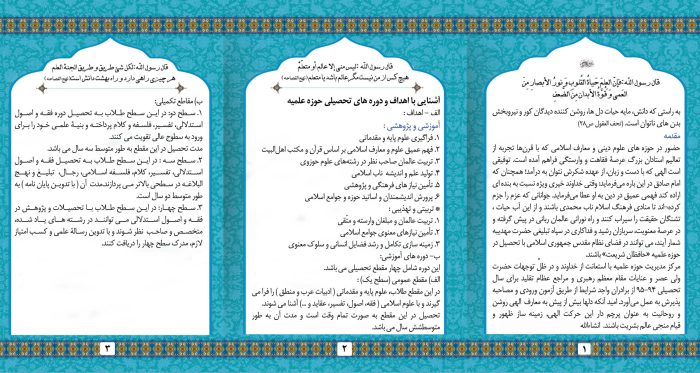 قال رسول الله: فإنّ العلم حیاةُ القلوب وَ نورُ الأبصار مِنَ
العمی وَ قُوَّةُ الأبدان مِنَ الضَّعفِ
به راستی که دانش، مایه حیات دل ها، روشن کننده دیدگان کور و نیروبخش
بدن های ناتوان است. (تحف العقول ص۲۸)
مقدمه
حضور در حوزه های علوم دینی و معارف اسلامی که با قرن‌ها تجربه از
تعالیم استادان بزرگ عرصهٔ فقاهت و وارستگی فراهم آمده است. توفیقی
است الهی که با دست و زبان، از عهده شکرش نتوان به درآمد؛ همچنان که
امام صادق در این باره می‌فرمایند: وقتی خداوند خیری ویژه نسبت به بنده ای
اراده کند فهمی عمیق در دین به او عطا می‌فرماید. جوانانی که عزم را جزم
کرده‌اند تا منادی فرهنگ اسلام ناب محمدی باشند و از این آب حیات ،
تشنگان حقیقت را سیراب کنند و راه نورانی عالمان ربانی در پیش گرفته و
در عرصهٔ معنویت، سربازان رشید و فداکاری در سپاه تبلیغی حضرت مهدی به
شمار آیند، می توانند در فضای نظام مقدس جمهوری اسلامی با تحصیل در
حوزه علمیه «حافظان شریعت» باشند.
مرکز مدیریت حوزه علمیه با استعانت از خداوند و در ظلّ توجهات حضرت
ولی عصر و عنایات مقام معظم رهبری و مراجع عظام تقلید برای سال
تحصیلی ۹۴-۹۵ از برادران واجد شرایط از طریق آزمون ورودی و مصاحبه
پذیرش به عمل می‌آورد. امید آنکه دلها بیش از پیش به معارف الهی روشن
و روحانیت به عنوان پرچم دار این حرکت الهی، زمینه ساز ظهور و
قیام منجی عالم بشریت باشند. انشاءالله
۱
قال رسول الله: لیس منی إلا عالم أو متعلّم
هیچ کس از من نیست مگر عالم باشد یا متعلم
آشنایی با اهداف و دوره های تحصیلی حوزه علمیه
الف - اهداف :
آموزشی و پژوهشی :
۱. فراگیری علوم پایه و مقدماتی
۲. فهم عمیق علوم و معارف اسلامی بر اساس قرآن و مکتب اهل‌البیت
۳. تربیت عالمان صاحب نظر در رشته‌های علوم حوزوی
۴. تولید علم و اندیشه ناب اسلامی
۵. تأمین نیاز های فرهنگی و پژوهشی
۶. پرورش اندیشمندان و اساتید حوزه و جوامع اسلامی
* تربیتی و تهذیبی :
۱. تربیت عالمان و مبلغان وارسته و متّقی
۲. تأمین نیازهای معنوی جوامع اسلامی
۳. زمینه سازی تکامل و رشد فضایل انسانی و سلوک معنوی
ب- دوره های آموزشی:
این دوره شامل چهار مقطع تحصیلی می باشد.
الف) مقطع عمومی (سطح یک) :
در این مقطع طلاب، علوم پایه و مقدماتی ( ادبیات عرب و منطق ) را فرا می
گیرند و با علوم اسلامی ( فقه، اصول، تفسیر، عقاید و ...) آشنا می شوند.
تحصیل در این مقطع به صورت تمام وقت است و مدت آن به طور
متوسطشش سال می باشد.
۲
قال رسول الله: لکل شیءٍ طریق و طریق الجنة العلم
هر چیزی راهی دارد و راه بهشت دانش است
ب) مقاطع تکمیلی:
۱. سطح دو: در این سطح طلاب به تحصیل دوره فقه و اصول
استدلالی، تفسیر، فلسفه و کلام پرداخته و بنیهٔ علمی خود را برای
ورود به سطوح عالی تقویت می کنند.
مدت تحصیل در این مقطع به طور متوسط سه سال می باشد.
۲. سطح سه: در این سطح طلاب به تحصیل فقه و اصول
استدلالی، تفسیر، کلام، فلسفه اسلامی، رجال، تبلیغ و نهج
البلاغه در سطحی بالاتر می پردازند.مدت آن ( با تدوین پایان نامه ) به
طور متوسط دو سال است.
۳. سطح چهار: در این سطح طلاب با تحصیلات و پژوهش در
فقه و اصول استدلالی می توانند در رشته های یاد شده،
متخصص و صاحب نظر شوند و با تدوین رسالهٔ علمی و کسب امتیاز
لازم، مدرک سطح چهار را دریافت کنند.
۳